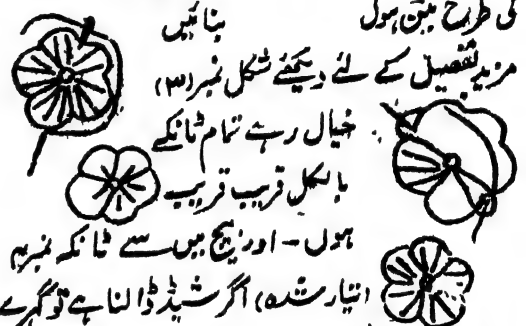 کی طرح بٹن ہول بنائیں
مزید تفصیل کے لئے دیکھئے شکل نمبر (۳)
خیال رہے تمام ٹانکے
بالکل قریب قریب
ہوں - اور بیچ میں سے ٹانکہ نمبر ۴
(تیار شدہ) اگر شیڈ ڈالنا ہے تو گہرے